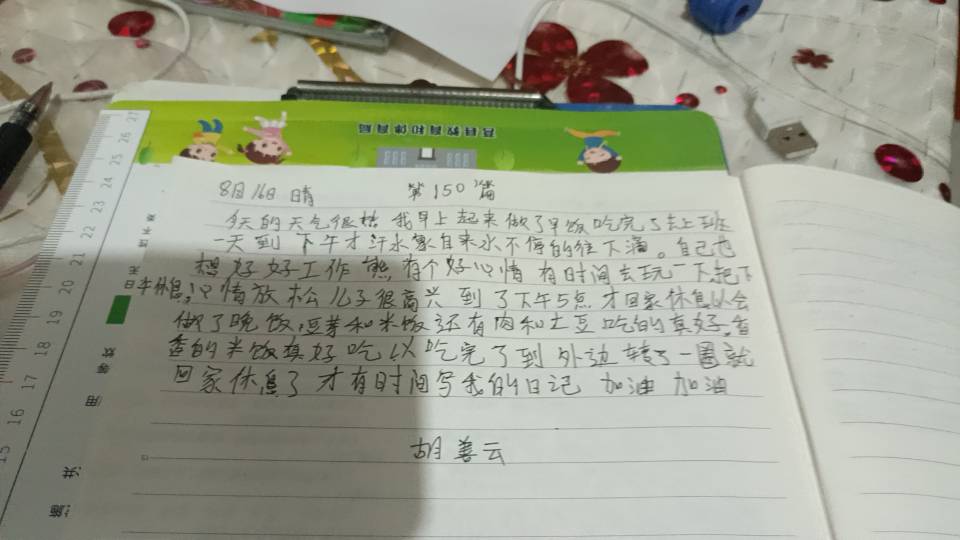 且县教育和体育局
8月16日 晴 第150篇
今天的天气很热 我早上起来做了早饭吃完了去上班
一天到下午才汗水象自来水不停的往下滴。自己也
想好好工作 有个好心情 有时间去玩一下把下
日牛休息,心情放松儿子很高兴 到了下午5点才回家休息以会
做了晚饭,豆芽和米饭还有肉和土豆吃的真好,香
香的米饭真好吃以吃完了到外边转了一圈就
回家休息了 才有时间写我的日记 加油 加油
胡善云
27
26
25
24
23
22
21
20
19
18
17
16
15